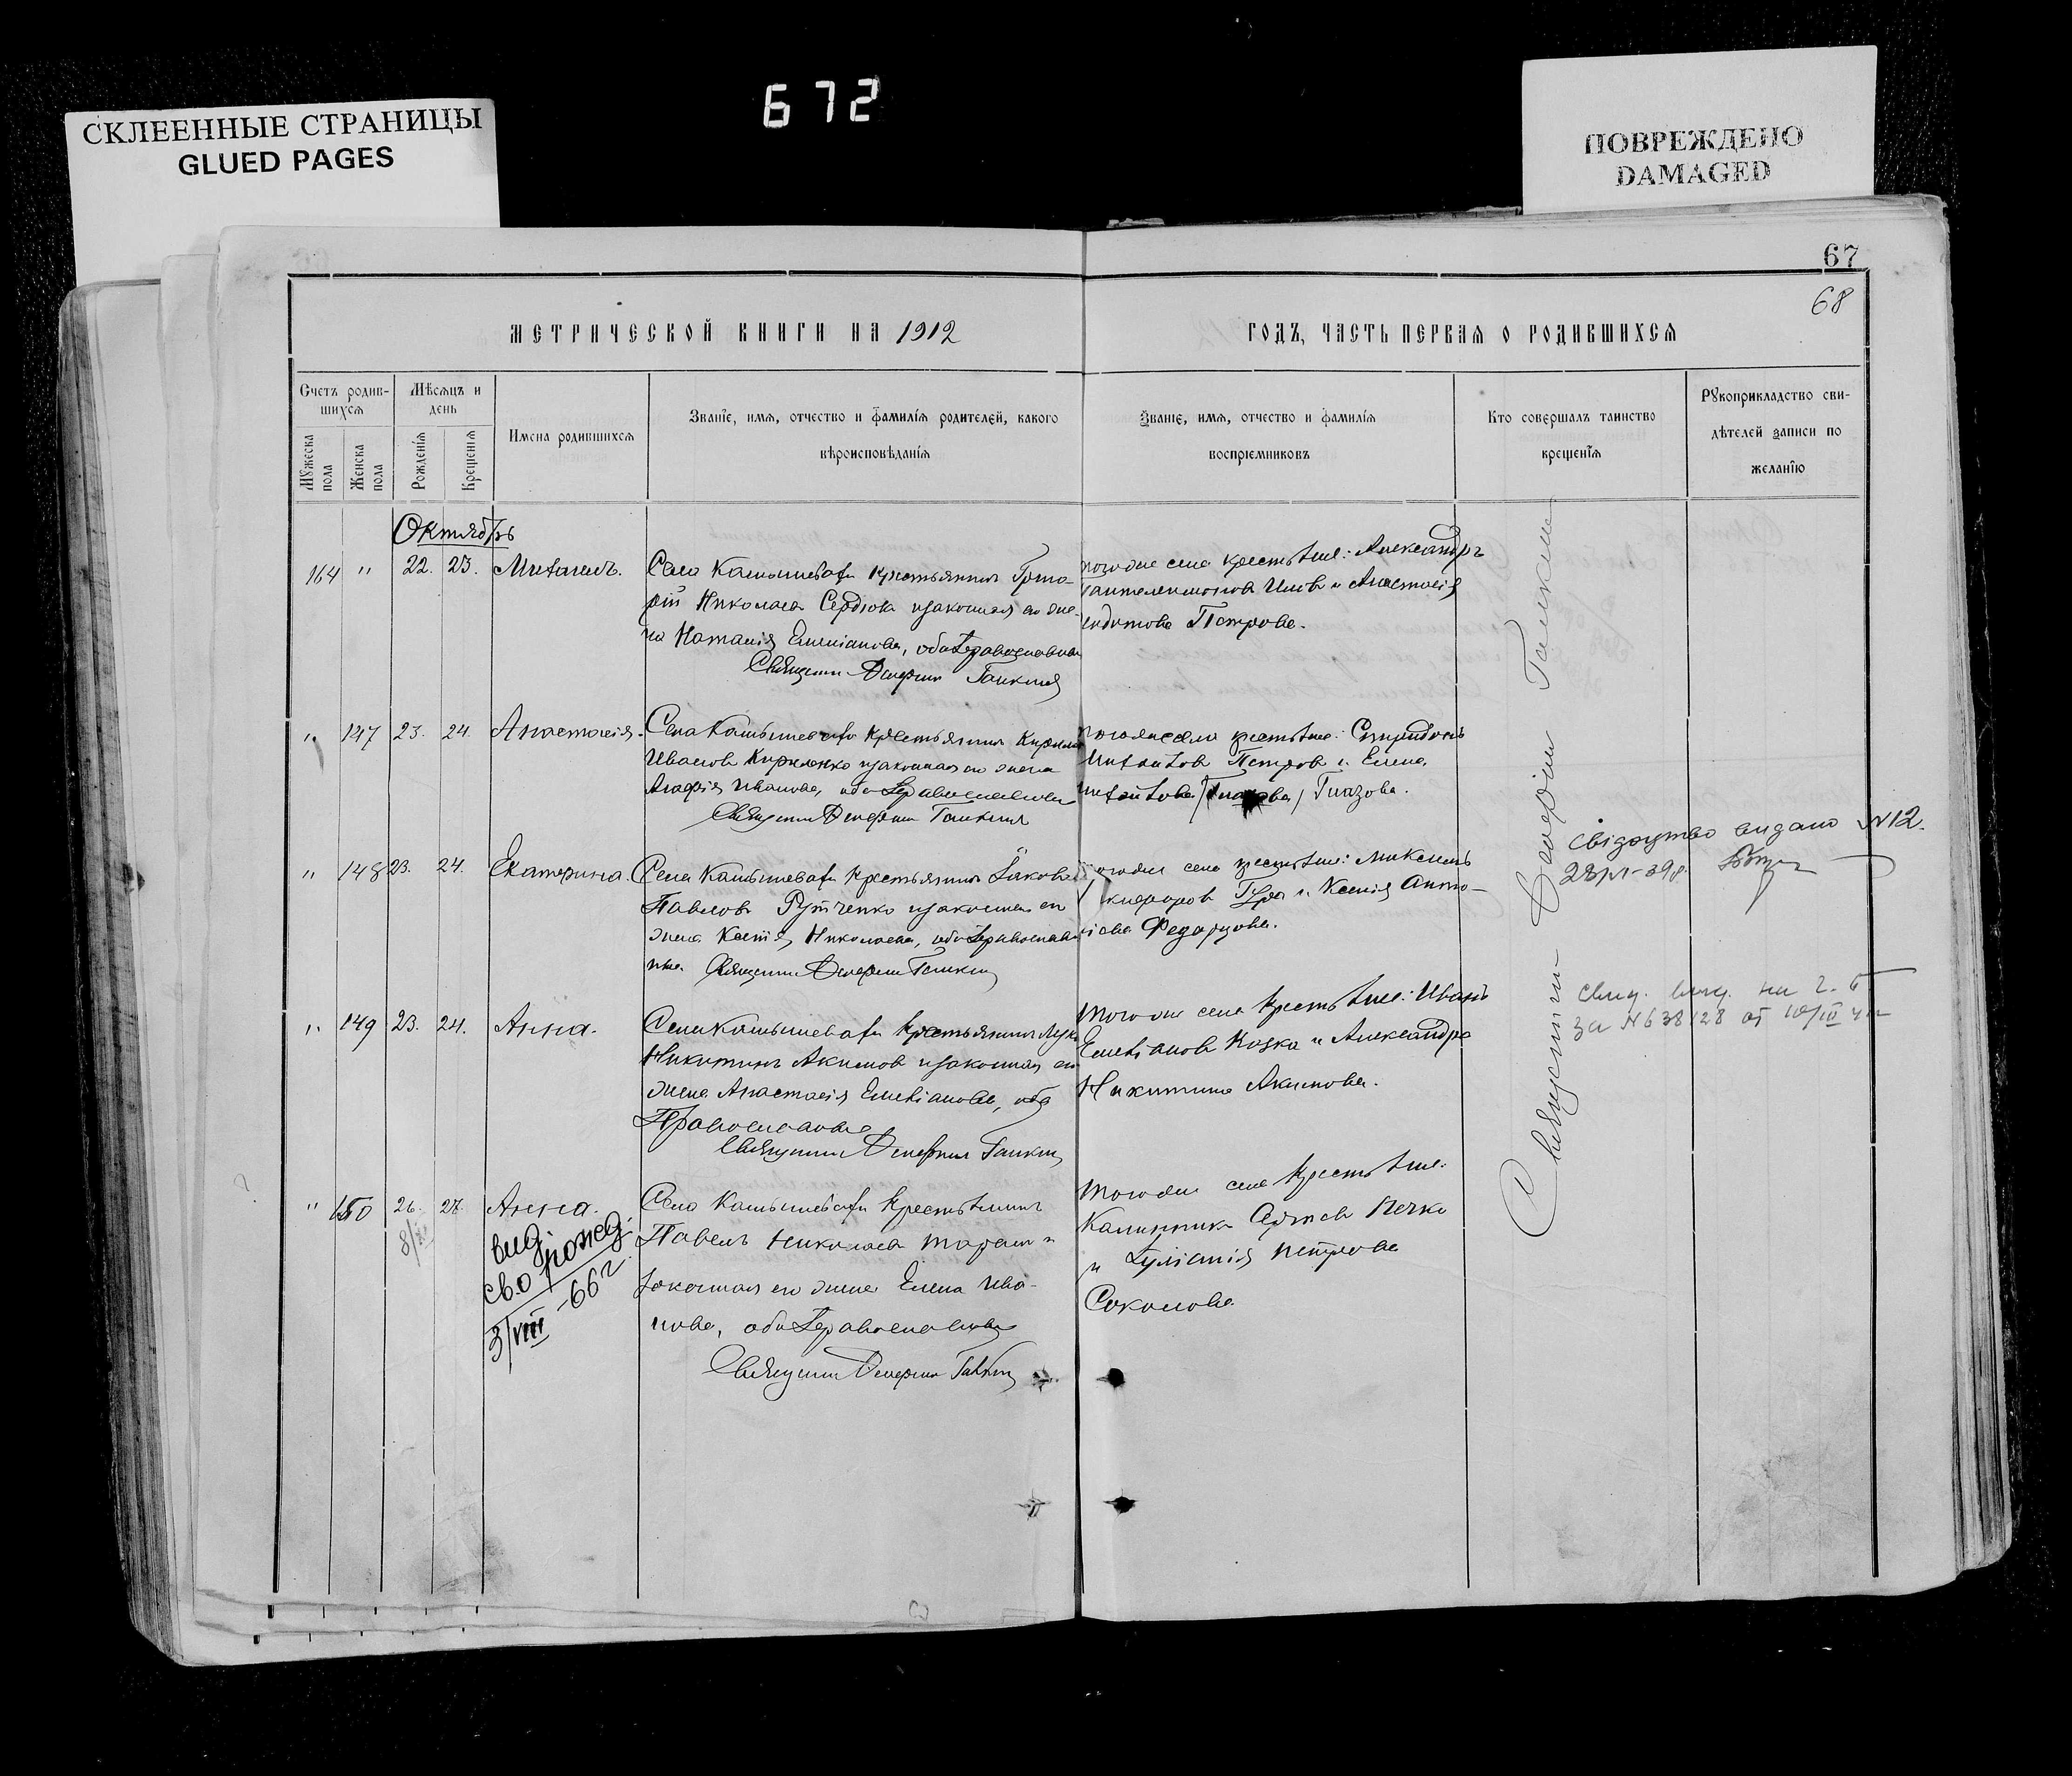 СКЛЕЕННЫЕ СТРАНИЦЫ
GLUED PAGES
672
ПОВРЕЖДЕНО
DAMAGED
67
68
МЕТРИЧЕСКОЙ КНИГИ НА 1912
ГОДЪ, ЧАСТЬ ПЕРВАЯ О РОДИВШИХСЯ
Счетъ родив-
шихся
Мѣсяцъ и
день
Мужеска
пола
Женска
пола
Рожденія
Крещенія
Имена родившихся
Званіе, имя, отчество и фамилія родителей, какого
вѣроисповѣданія
Званіе, имя, отчество и фамилія
воспріемниковъ
Кто совершалъ таинство
крещенія
Рукоприкладство сви-
дѣтелей записи по
желанію
Октябрь
164 " 22. 23. Михаилъ.
Села Камышевахи крестьянинъ Григо-
рій Николаевъ Сердюкъ и законная его же-
на Наталія Емеліанова, оба православные
Священникъ Галкинъ
того же села крестьяне: Александръ
Пантелеимоновъ и Анастасія
Петрова.
" 147 23. 24. Анастасія.
Села Камышевахи крестьянинъ Кирилъ
Ивановъ Кириленко и законная его жена
Агафія Иванова, оба православные
Священникъ Галкинъ
того же села крестьяне: Спиридонъ
Михайловъ Петровъ и Елена
Михайлова Глазова.
" 148 23. 24. Екатерина.
Села Камышевахи крестьянинъ Іаковъ
Павловъ и законная его
жена Ксенія Николаева, оба православ-
ные. Священникъ Галкинъ
того же села крестьяне: Максимъ
Никифоровъ и Ксенія Анто-
нова Федорцова.
свідоцтво видано №12.
28 39р.
" 149 23. 24. Анна.
Села Камышевахи крестьянинъ Лука
Никитинъ Акимовъ и законная его
жена Анастасія Емеліанова, оба
Православные
Священникъ Галкинъ
того же села крестьяне: Иванъ
Емеліановъ Козка и Александра
Никитина Акимова.
за №
" 150 26. 27. Анна.
Села Камышевахи крестьянинъ
Павелъ Николаевъ и
законная его жена Елена Ива-
нова, оба православные
Священникъ Галкинъ
того же села крестьяне:
Каллиникъ Печка
и Іуліанія Петрова
Соколова
вид.
св.о рожд.
3/VIII-66г.
Священникъ Галкинъ